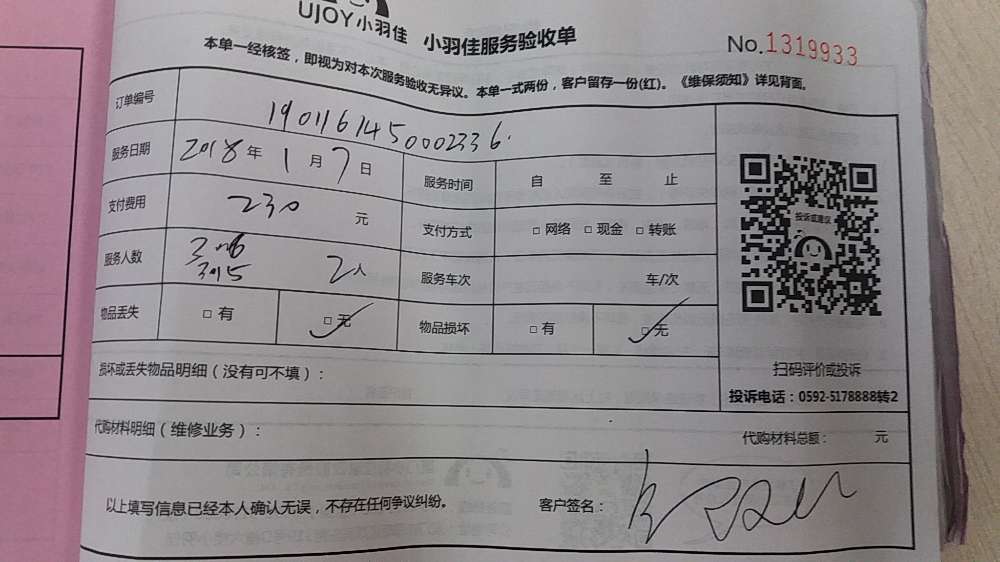 UJOY小羽佳 小羽佳服务验收单 No.1319933
本单一经核签，即视为对本次服务验收无异议。本单一式两份，客户留存一份(红)。《维保须知》详见背面。
订单编号 1901161450002336
服务日期 2018年1月7日 服务时间 自 至 止
支付费用 230 元 支付方式 □ 网络 □ 现金 □ 转账
服务人数 2人 服务车次 车/次
3015
物品丢失 □ 有 □ 无 物品损坏 □ 有 □ 无
损坏或丢失物品明细（没有可不填）：
投诉或建议
扫码评价或投诉
投诉电话：0592-5178888转2
代购材料明细（维修业务）： 代购材料总额： 元
以上填写信息已经本人确认无误，不存在任何争议纠纷。 客户签名：